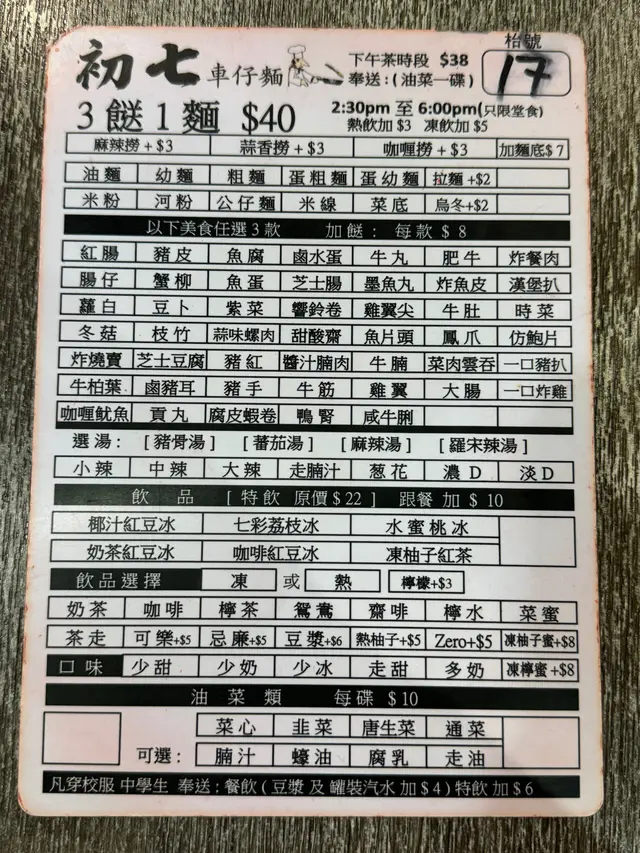 初七 車仔麵
下午茶時段 $38
奉送:(油菜一碟)
枱號
17
3 餸 1 麵 $40
2:30pm 至 6:00pm(只限堂食)
熱飲加 $3 凍飲加 $5
麻辣撈 + $3 蒜香撈 + $3 咖喱撈 + $3 加麵底$ 7
油麵 幼麵 粗麵 蛋粗麵 蛋幼麵 拉麵 +$2
米粉 河粉 公仔麵 米線 菜底 烏冬+$2
以下美食任選 3 款 加餸: 每款 $ 8
紅腸 豬皮 魚腐 鹵水蛋 牛丸 肥牛 炸餐肉
腸仔 蟹柳 魚蛋 芝士腸 墨魚丸 炸魚皮 漢堡扒
蘿白 豆卜 紫菜 響鈴卷 雞翼尖 牛肚 時菜
冬菇 枝竹 蒜味螺肉 甜酸齋 魚片頭 鳳爪 仿鮑片
炸燒賣 芝士豆腐 豬紅 醬汁腩肉 牛腩 菜肉雲吞 一口豬扒
牛柏葉 鹵豬耳 豬手 牛筋 雞翼 大腸 一口炸雞
咖喱魷魚 貢丸 腐皮蝦卷 鴨腎 咸牛脷
選湯: [ 豬骨湯 ] [ 蕃茄湯 ] [ 麻辣湯 ] [ 羅宋辣湯 ]
小辣 中辣 大辣 走腩汁 葱花 濃 D 淡 D
飲品 [ 特飲 原價 $ 22 ] 跟餐 加 $ 10
椰汁紅豆冰 七彩荔枝冰 水蜜桃冰
奶茶紅豆冰 咖啡紅豆冰 凍柚子紅茶
飲品選擇 凍 或 熱 檸檬+$3
奶茶 咖啡 檸茶 鴛鴦 齋啡 檸水 菜蜜
茶走 可樂+$5 忌廉+$5 豆漿+$6 熱柚子+$5 Zero+$5 凍柚子蜜+$8
口味 少甜 少奶 少冰 走甜 多奶 凍檸蜜+$8
油菜類 每碟 $ 10
菜心 韭菜 唐生菜 通菜
可選: 腩汁 蠔油 腐乳 走油
凡穿校服 中學生 奉送:餐飲(豆漿 及 罐裝汽水 加 $ 4)特飲 加 $ 6